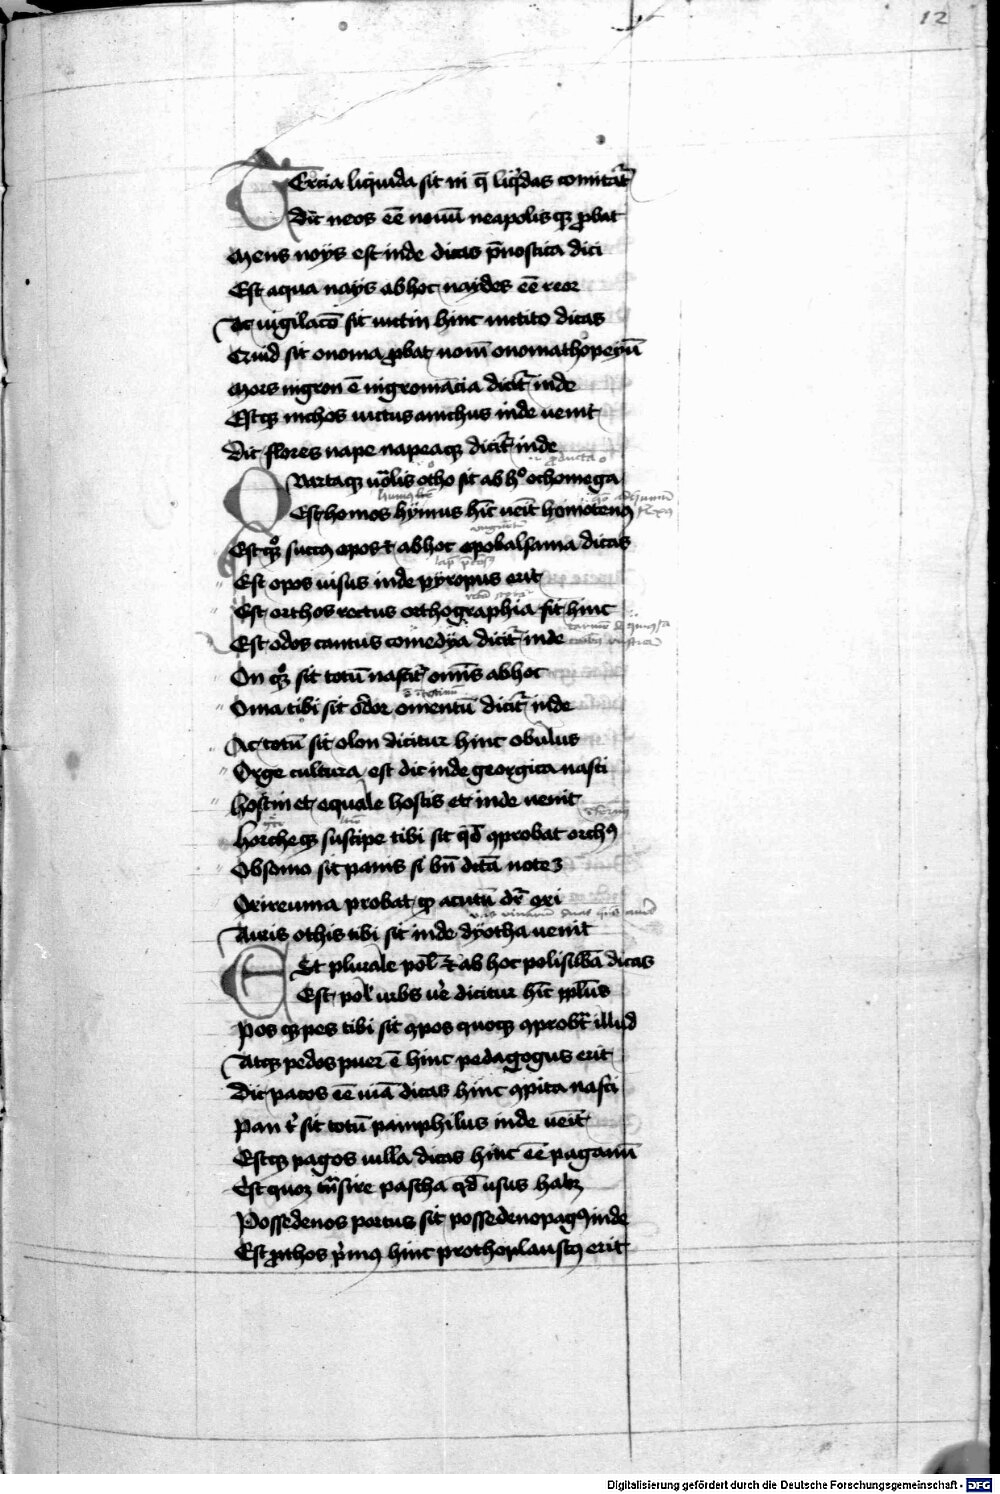 12
Tercia liquida sit ni q̄ liq̇das comitat̄r
Dic neos eē nouū neapolisqꝫ ꝓbat
Mens noys est inde dicas p̄nostica dici
Est aqua nays ab hoc naydes eē reor
Ac uigilacō sit nictin hinc nictito dicas
Cruid sit onoma ꝓbat nom̄ onomathopeyū
Mors nigron ē nigromācia dicit̄ inde
Estqꝫ nichos uictus anichus inde uenit
Dic flores nape napeaqꝫ dicit̄ inde
ꝓducta o
Quartaqꝫ uo̅lis otho sit ab hᵒ othomega
Est homos hymus hīc ueīt homotenꝰ
Estqꝫ succꝰ opos ⁊ ab hoc opobalsama dicas
Est opos uisus inde pyropus erit
Est orthos rectus orthographia fit hinc
Est odos cantus comedya dicit̄ inde
On qꝫ sit totū nascit̄ omīs ab hoc
Oma tibi sit odor omentū dicit̄ inde
Ac totū sit olon dicitur hinc obulus
Orge cultura est dic inde georgica nasci
Hostin et equale hostis et inde uenit
Horcheqꝫ suscipe tibi sit qd̄ ꝯprobat orchꝰ
Obsomo sit panis si bn̄ dicta notes
Orireuma probat qꝫ acutū dr̄ oxi
Auris othis tibi sit inde dyotha uenit
Et plurale pol̄ ⁊ ab hoc polisillbā dicas
Est pol̄ urbs ue̅ dicitur hīc pp̄lus
Pos qꝫ pes tibi sit ꝯpos quoqꝫ ꝯprobt̄ illud
Atqꝫ pedos puer ē hinc pedagogus erit
Dic patos eē uiā dicas hinc ꝯpita nasci
Pan t̄ sit totū pamphilus inde ueīt
Estqꝫ pagos uilla dicas hinc eē paganū
Est quoꝫ tn̄sire pascha qd̄ usus habꝫ
Possedenos portus sit possedenopagꝰ inde
Est ꝓthos p̄mꝰ hinc prothoplaustꝰ erit
Digitalisierung gefördert durch die Deutsche Forschungsgemeinschaft - DFG